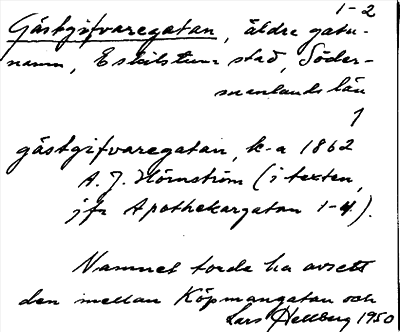 1-2
Gästgifvaregatan, äldre gatu-
namn, Eskilstuna stad, Söder-
manlands län
1
gästgifvaregatan, k-a 1862
A. J. Hörnström (i texten,
jfr Apothekargatan 1-4).
Namnet torde ha avsett
den mellan Köpmangatan och
Lars Hellberg 1950